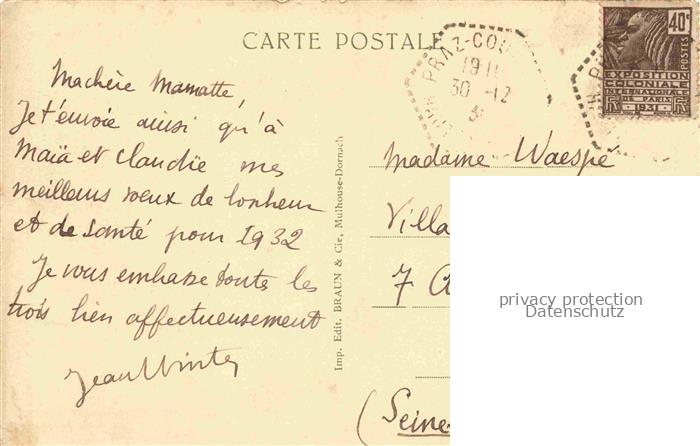 CARTE POSTALE
Machère Mamatte
Je t'envoie ainsi qu'à
Maïa et Claudie mes
meilleurs voeux de bonheur
et de santé pour 1932
Je vous embasse toute les
trois bien affectueusement
Jean
Imp. Edit. BRAUN & Cie, Mulhouse-Dornach
PRAZ-COU
30 -12
40c
POSTES
EXPOSITION
COLONIALE
INTERNATIONALE
DE PARIS
1931
Madame Waespé
Villa
7 A
(Seine
privacy protection
Datenschutz